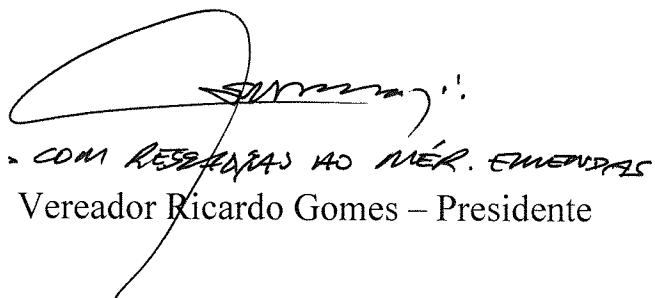 - COM RESERVAS AO MÉR. EMENDAS
Vereador Ricardo Gomes – Presidente